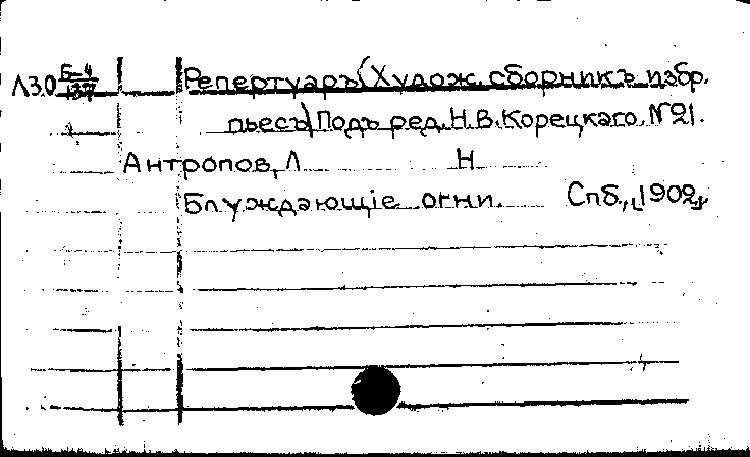 Л30 Б-4/137 Репертуаръ(Худож. сборникъ избр.
пьесъ) Подъ ред. Н.В.Корецкаго. №21.
Антропов, Л Н
Блуждающіе огни. Спб., 1902,